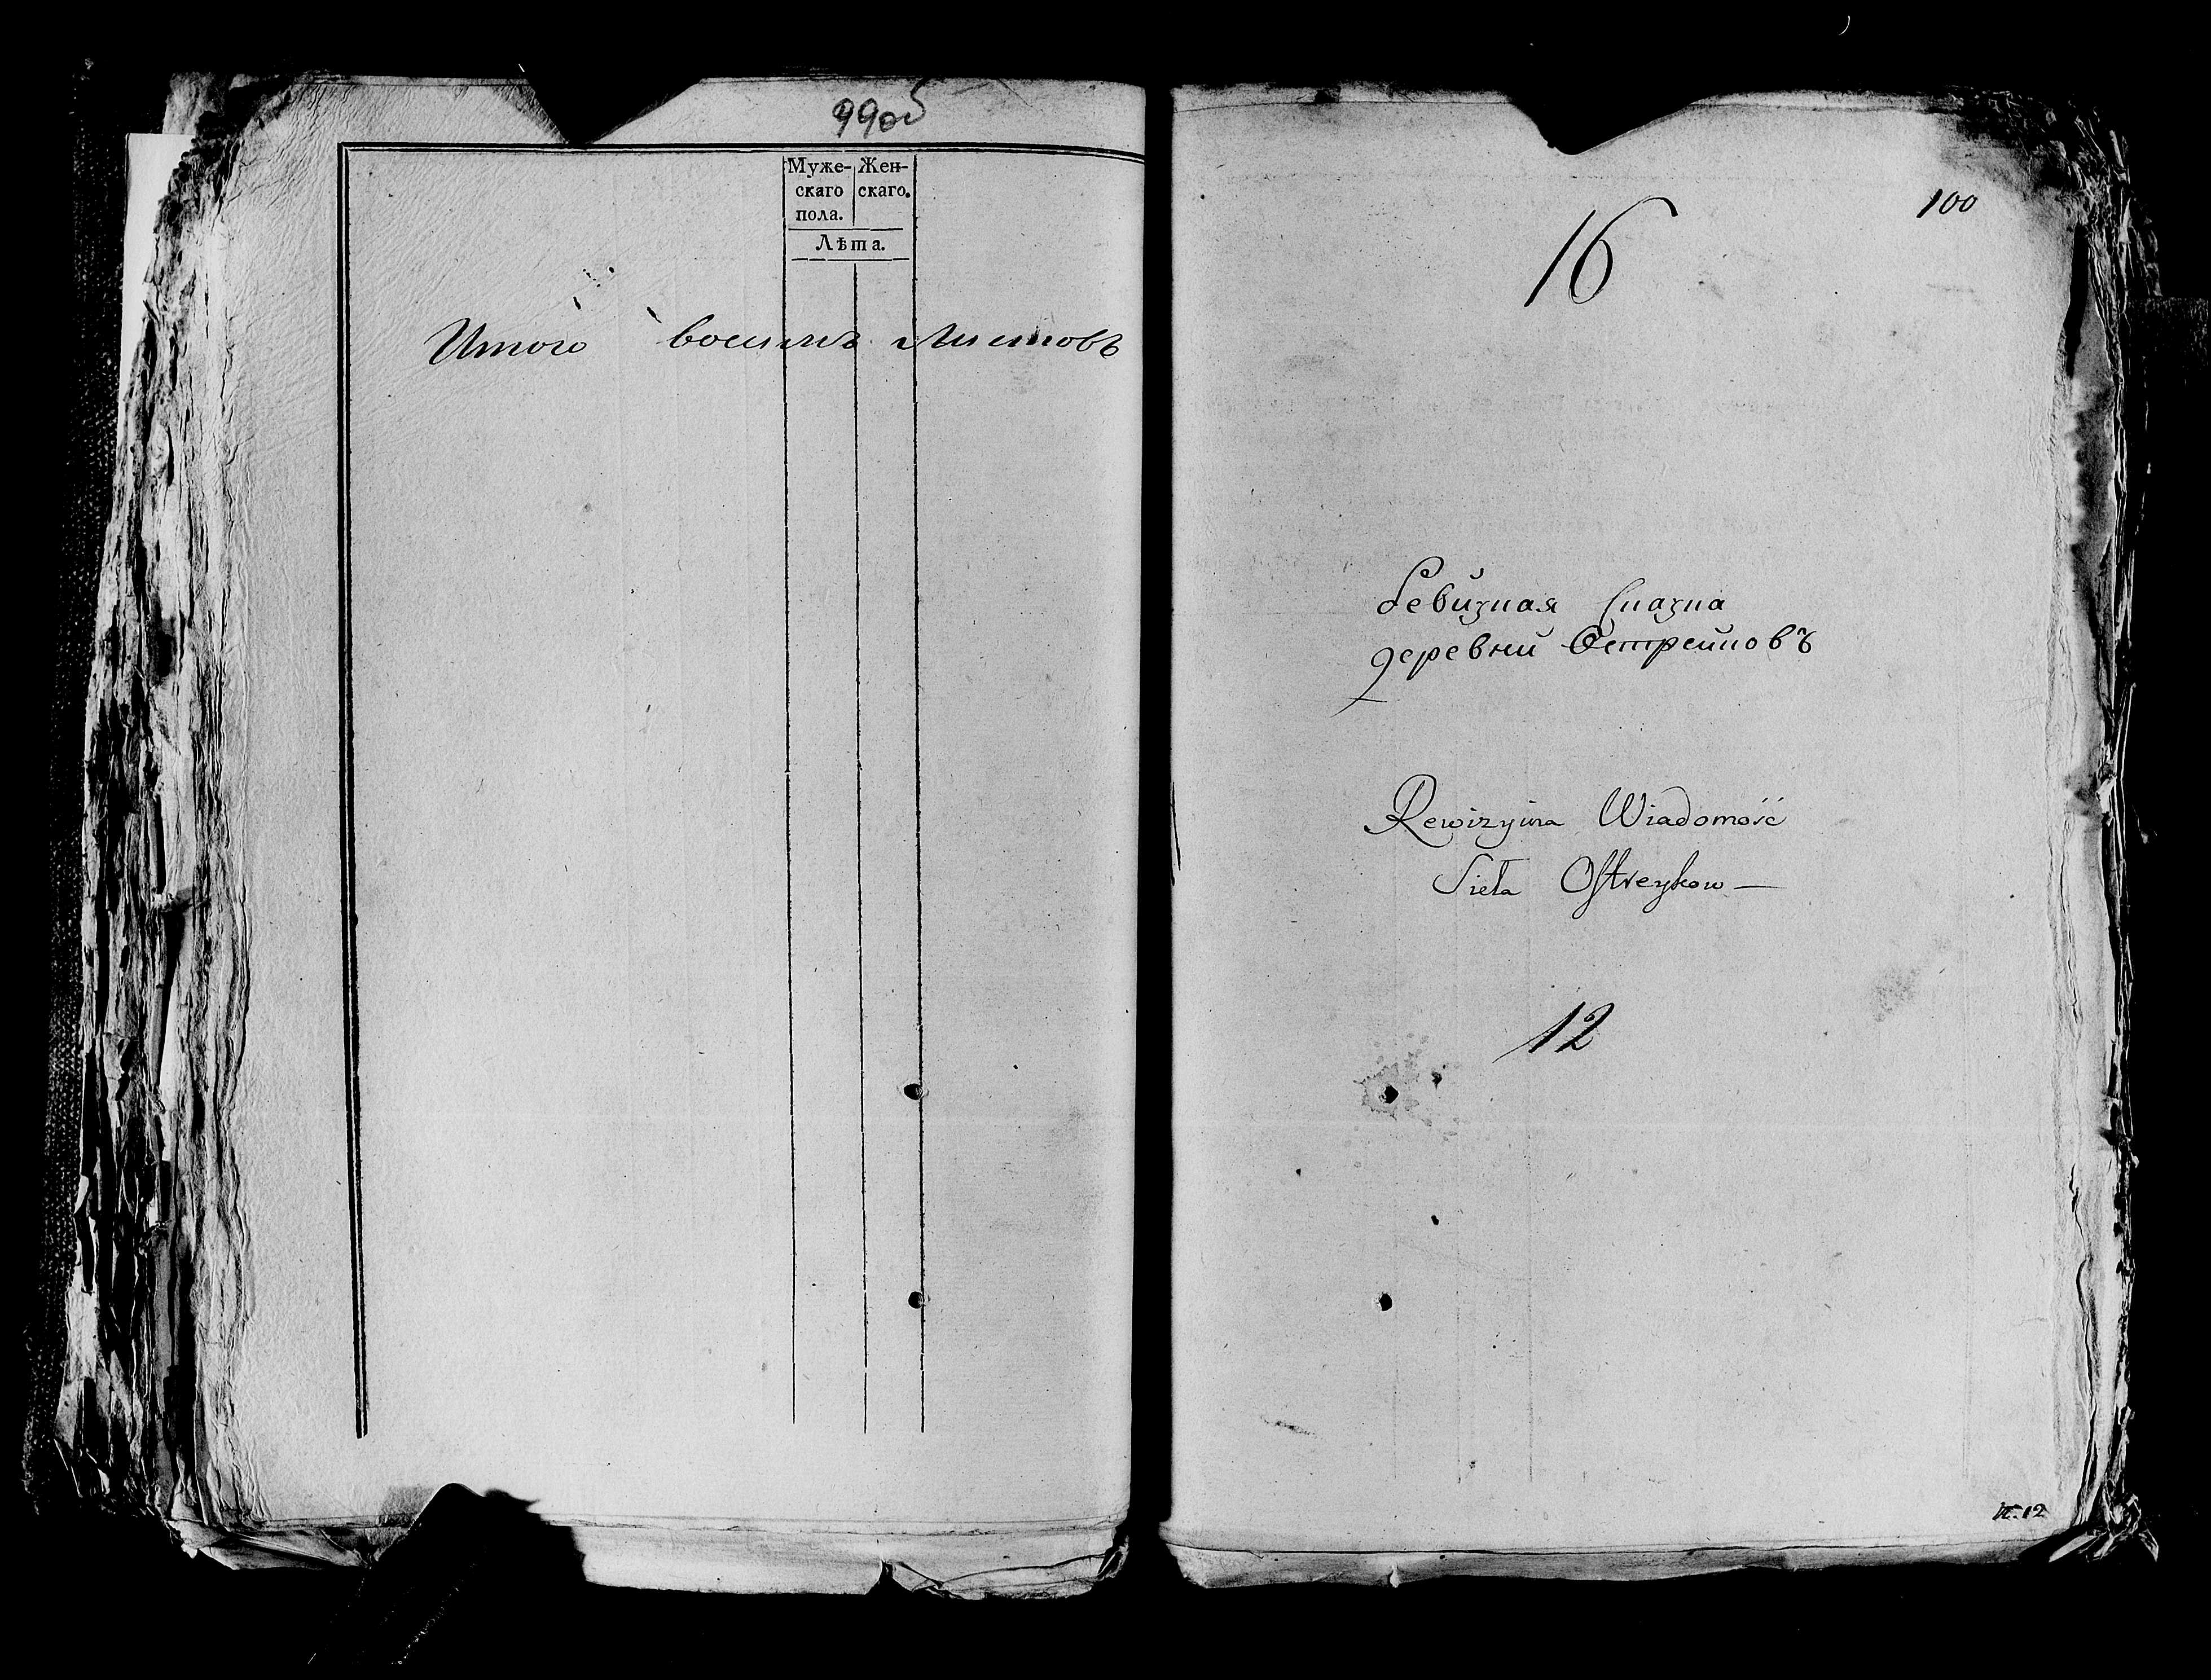 99об
Муже- Жен-
скаго скаго.
пола.
Лѣта.
Итого восимъ Листовъ
100
16
Ревизная Сказка
деревни Острейковъ
Rewizyina Wiadomość
Sieła Ostreykow —
12